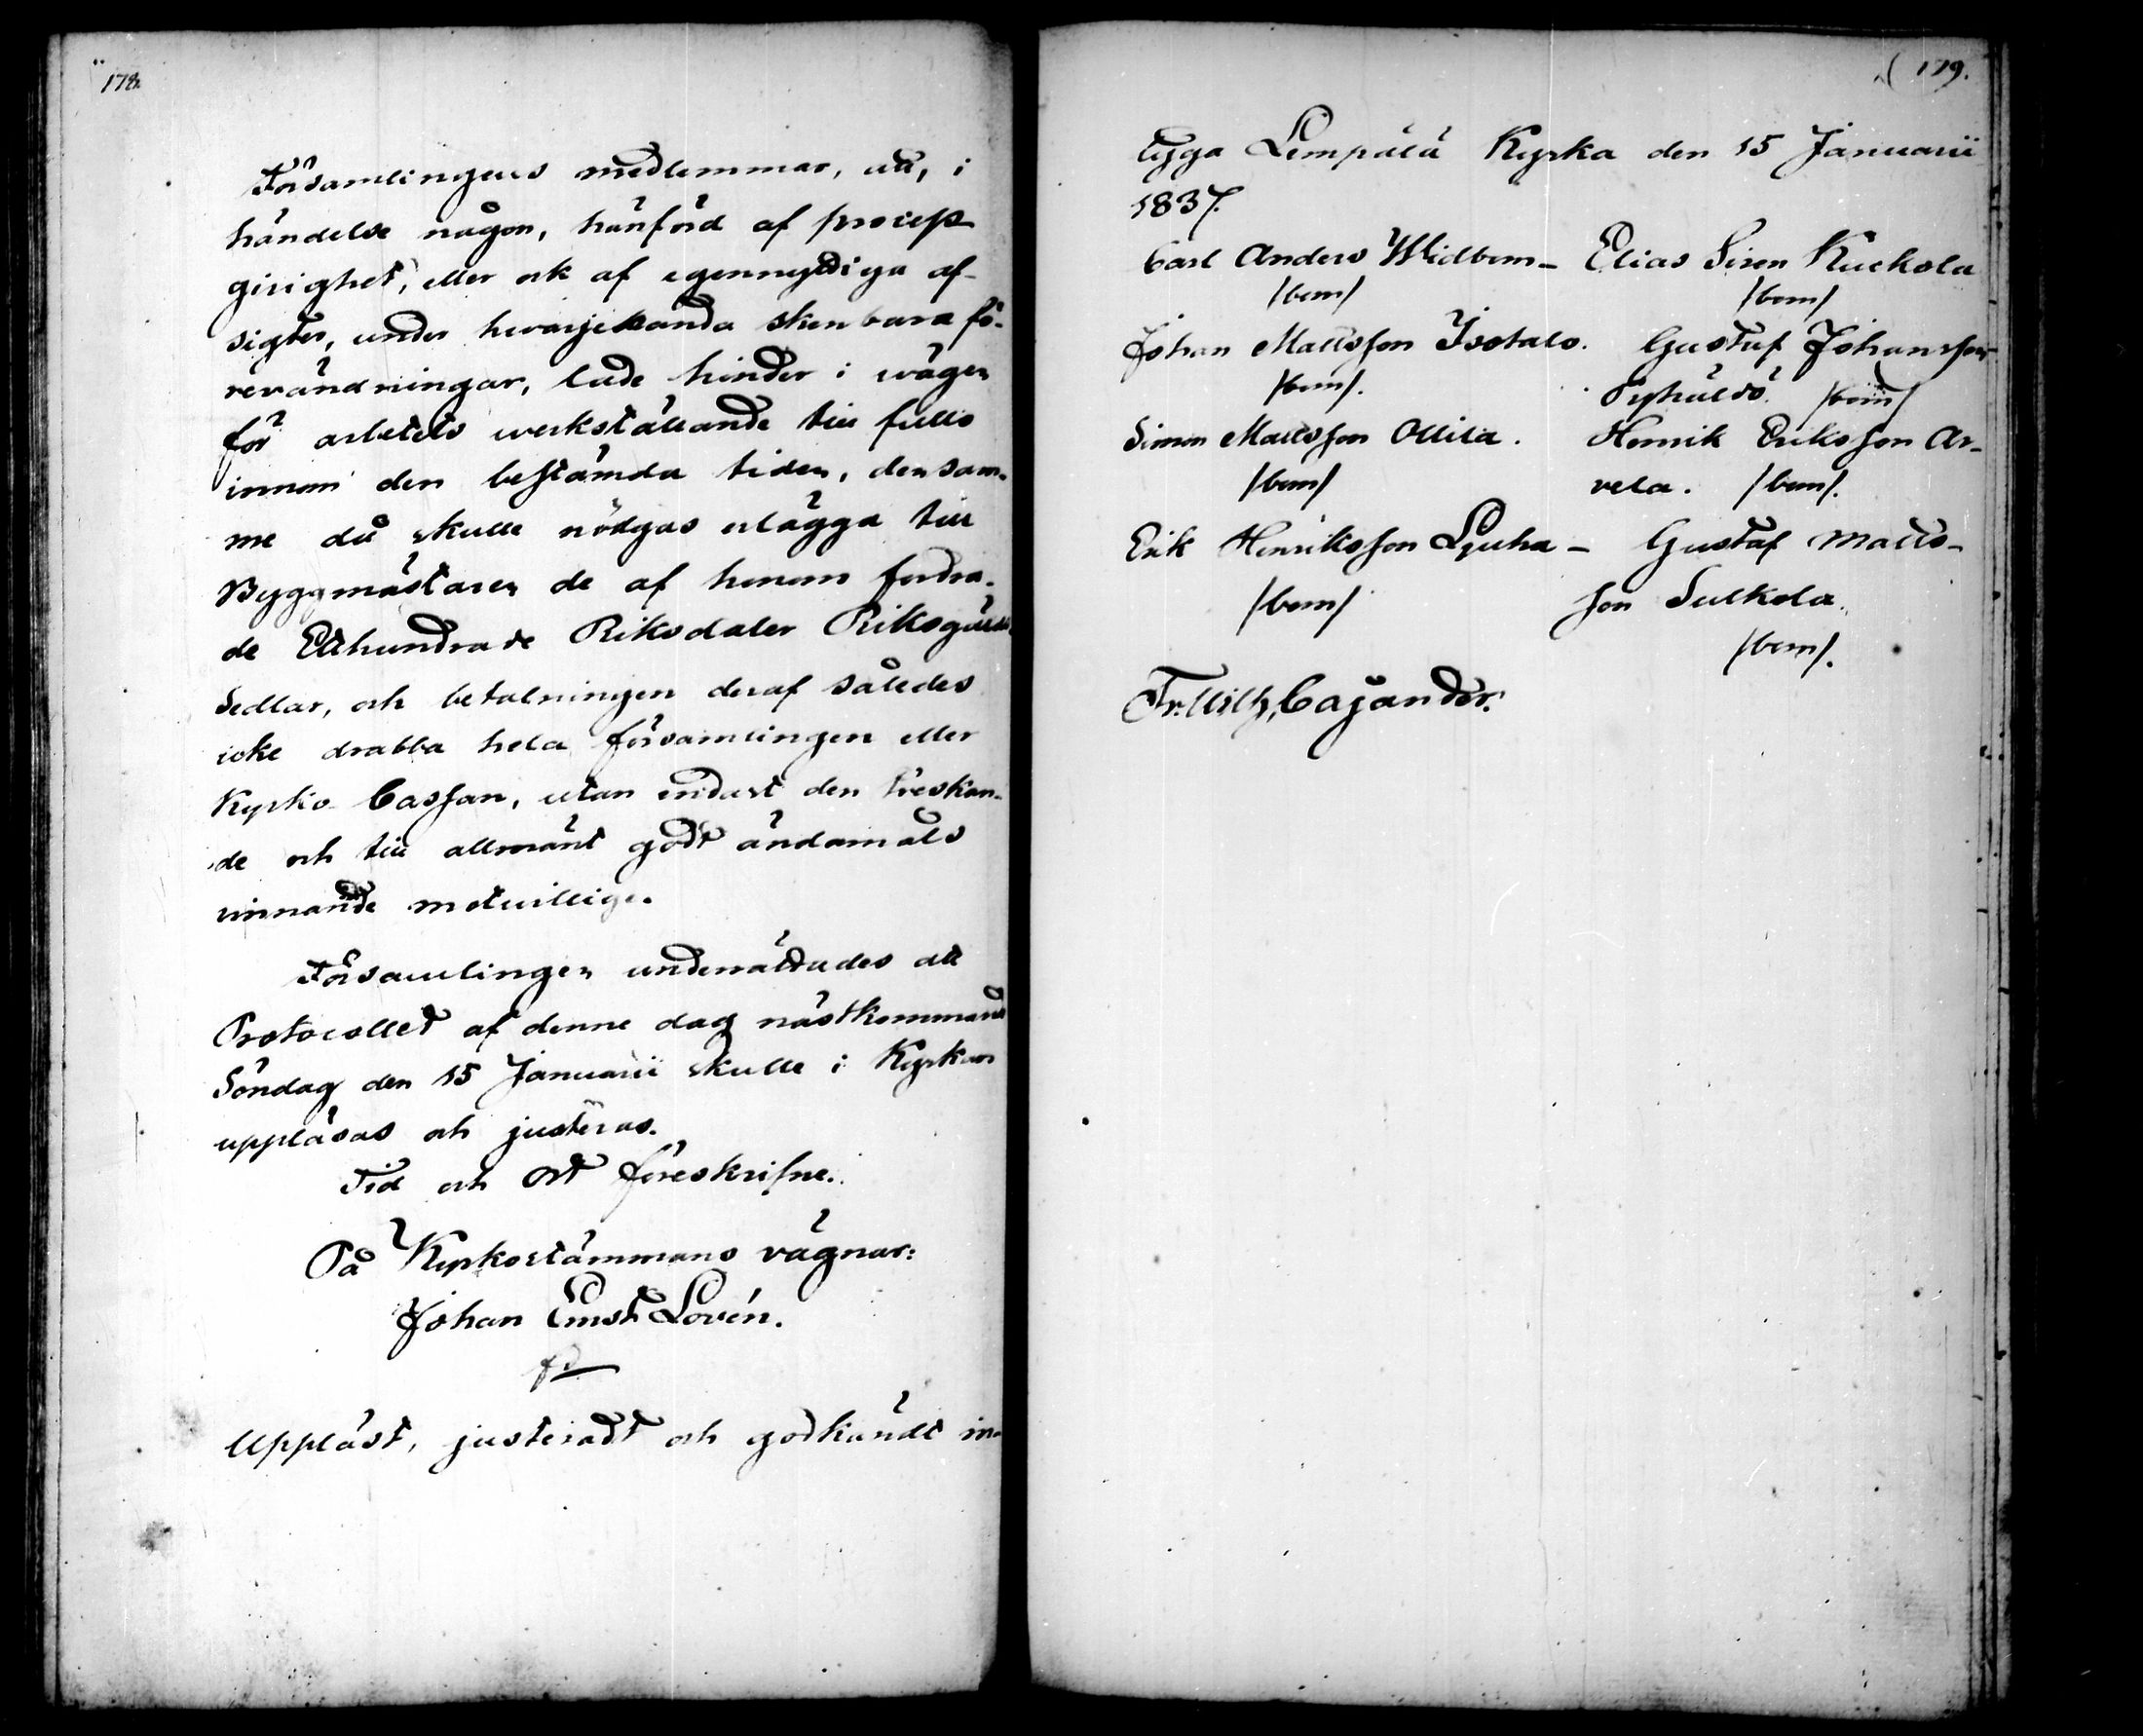 178.
Församlingens medlemmar, att, i
händelse någon, hänförd af process
girighet, eller ock af egennyttiga af-
sigter, under hvarjehanda skenbara fö-
revändningar, lade hinder i wägen
för arbetets werkställande till fullo
innom den bestämda tiden, densam-
me då skulle nödgas erlägga till
Byggmästaren de af honom fordra-
de Etthundrade Riksdaler Riksgälds
Sedlar, och betalningen deraf således
icke drabba hela församlingen eller
Kyrko Cassan, utan endast den treskan-
de och till allmänt godt ändamåls
vinnande motvillige.
Församlingen underrättades att
Protocollet af denne dag nästkommand
Söndag den 15 Januarii skulle i Kyrkan
uppläsas och justeras.
Tid och Ort föreskrifne.
På Kyrkostämmans vägnar:
Johan Ernst Lovén.
Uppläst, justeradt och godkändt in-
179.
tygga Lempälä Kyrka den 15 Januarii
1837.
Carl Anders Widbom – Elias Siren Kuckola
/bom/ /bom/
Johan Mattsson Isotalo. Gustaf Johansson
/bom/. Pyhäldö. /bom/
Simon Mattsson Ollila. Henrik Eriksson Ar-
/bom/ vela. /bom/.
Erik Henriksson Ljuha – Gustaf Matts-
/bom/ son Sulkola.
/bom/.
Fr. Wilh. Cajander.